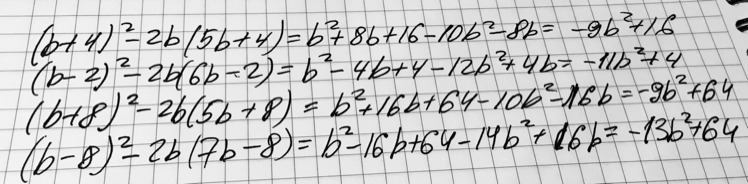 (b+4)²-2b(5b+4)=b²+8b+16-10b²-8b=-9b²+16
(b-2)²-2b(6b-2)=b²-4b+4-12b²+4b=-11b²+4
(b+8)²-2b(5b+8)=b²+16b+64-10b²-16b=-9b²+64
(b-8)²-2b(7b-8)=b²-16b+64-14b²+16b=-13b²+64